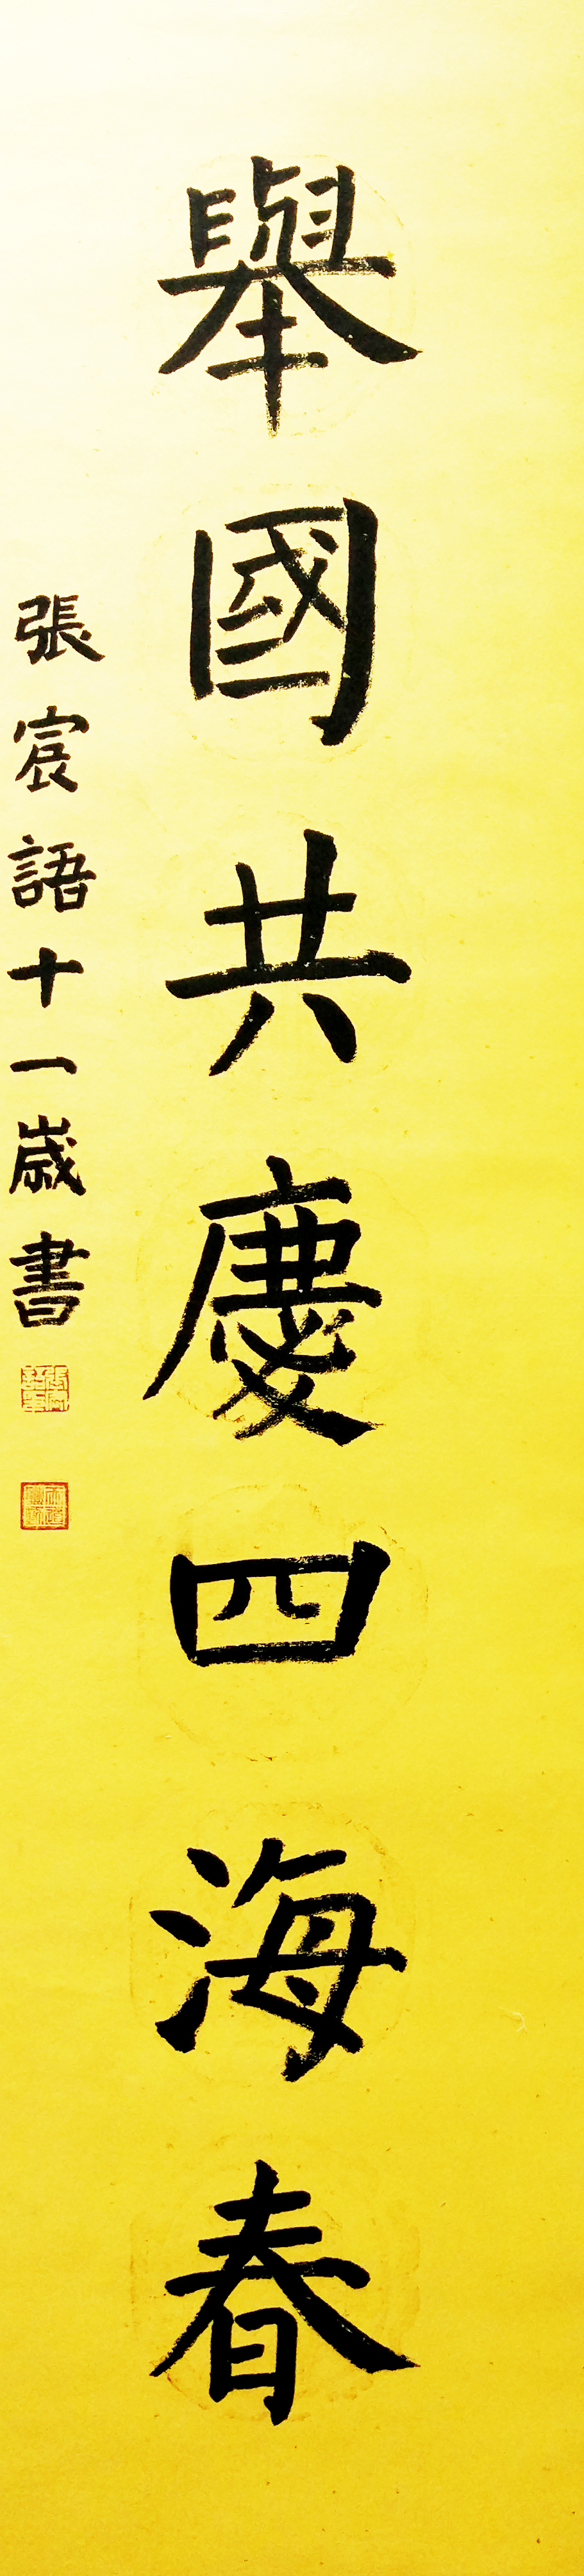 舉國共慶四海春
張宸語十一歲書